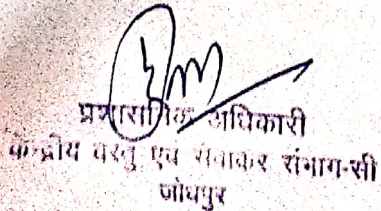 प्रशासनिक अधिकारी
केन्द्रीय वस्तु एवं सेवाकर संभाग-सी
जोधपुर